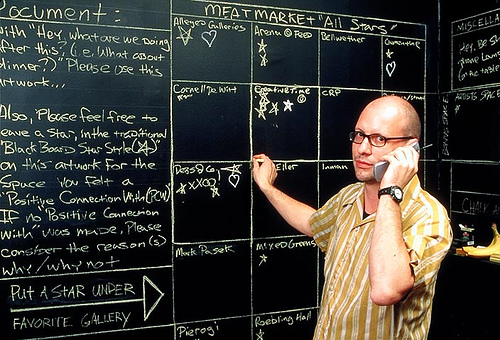 Document:
with "Hey, what are we doing
after this?" (i.e. "What about
dinner?") "Please use this
artwork...
Also, Please feel free to
leave a Star, in the traditional
"Black Board Star Style (☆)
on this artwork for the
Space you felt a
"Positive Connection With (PCW)
If no "Positive Connection
with" was made, Please
consider the reason(s)
why/why not
PUT A STAR UNDER
FAVORITE GALLERY
MEAT MARKET "All Stars"
Allegro Galleries
Arena @ Feed
Bellwether
Cornell DeWitt
Creative Time
CRP
XXXO
Eller
Inman
Mark Pasek
Mixed Greens
Pierogi
Roebling Hall
Hey, Be